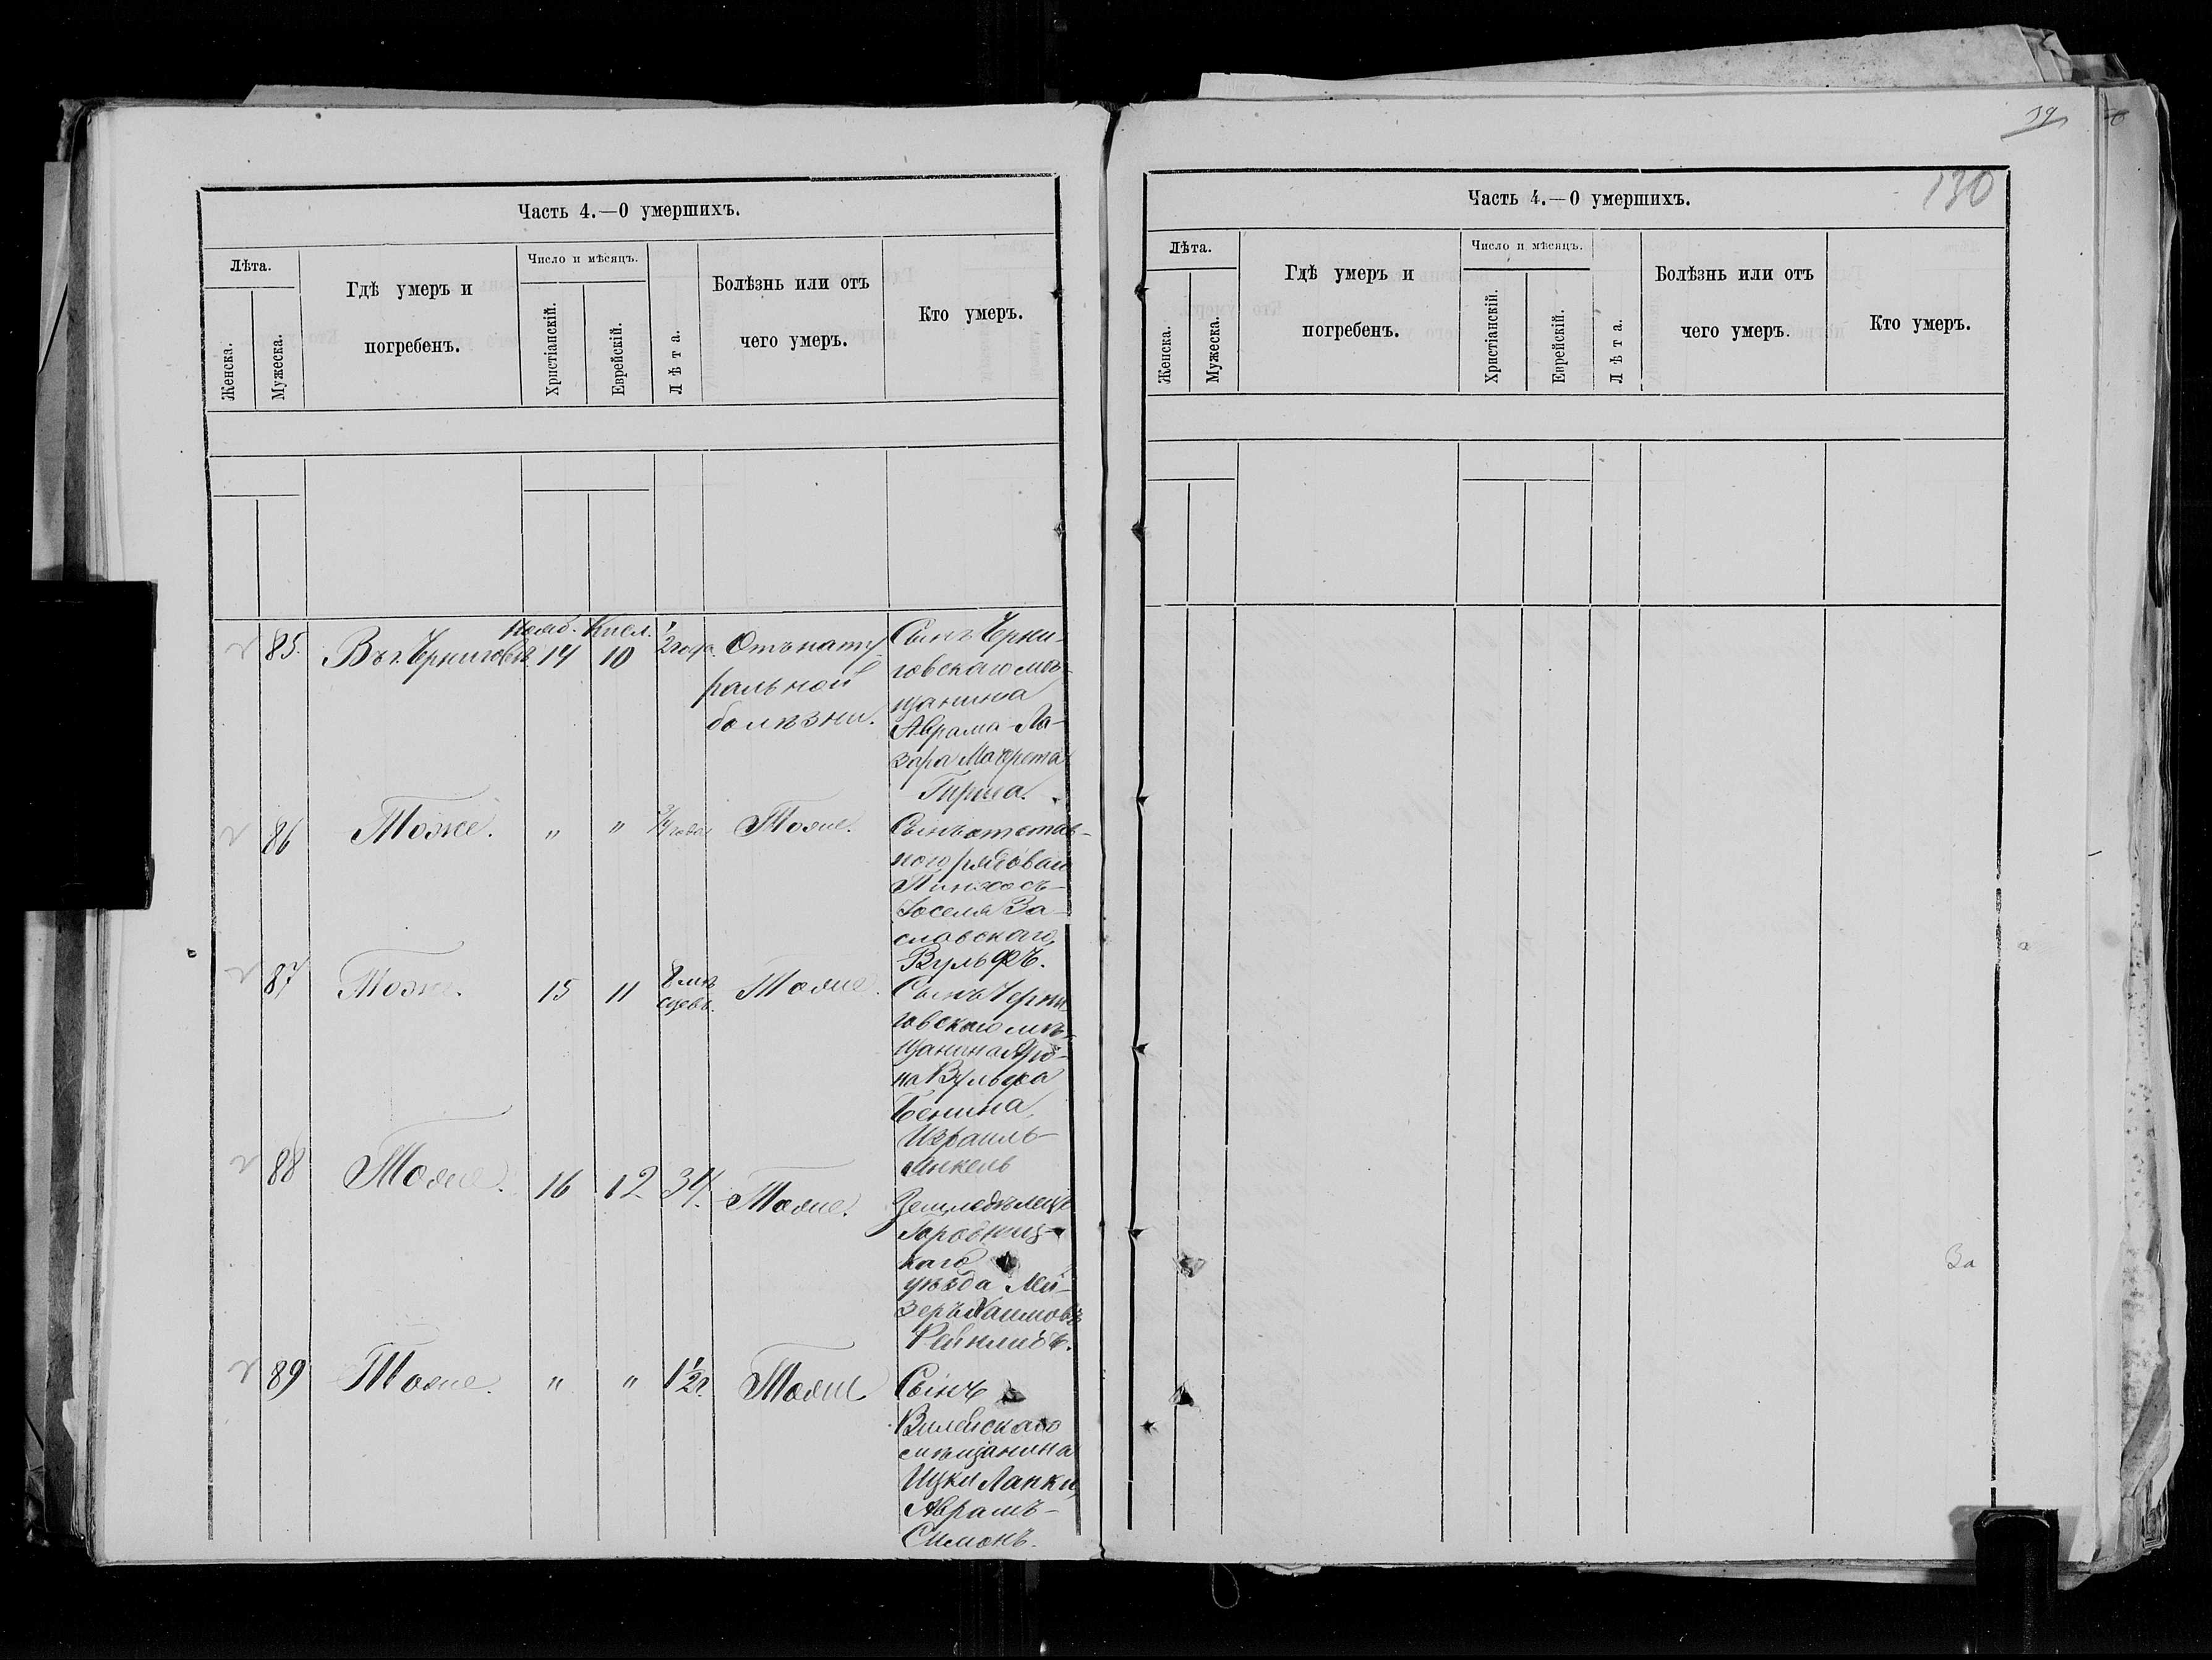 Часть 4.—О умершихъ.
Лѣта.
Женска.
Мужеска.
Гдѣ умеръ и
погребенъ.
Число и мѣсяцъ.
Христіанскій.
Еврейскій.
Лѣта.
Болѣзнь или отъ
чего умеръ.
Кто умеръ.
85. Въ г. Черниговѣ Нояб. 14 Кисл. 10 1/2 года. Отъ нату
ральной
болѣзни.
Сынъ Черни-
говскаго мѣ-
щанина
Аврама-Ла-
зара
86 Тоже. " " 3/4 года Тоже.
Сынъ отстав-
ного рядоваго
Пинхосъ-
Іоселя За-
славскаго,
Вульфъ.
87 Тоже. 15 11 8 мѣ
сяцевъ. Тоже.
Сынъ Черни
говскаго мѣ-
щанина Аро-
на Вульфа
Бенина,
Израиль-
Янкель
88 Тоже. 16 12 34. Тоже.
Земледѣлецъ
Городниц-
каго
уѣзда Лей-
зеръ Хаимовъ
89 Тоже. " " 1 1/2 г. Тоже
Сынъ
Вилейскаго
мѣщанина
Ицки Лапки,
Аврамъ-
Симонъ.
39
130
Часть 4.—О умершихъ.
Лѣта.
Женска.
Мужеска.
Гдѣ умеръ и
погребенъ.
Число и мѣсяцъ.
Христіанскій.
Еврейскій.
Лѣта.
Болѣзнь или отъ
чего умеръ.
Кто умеръ.
За